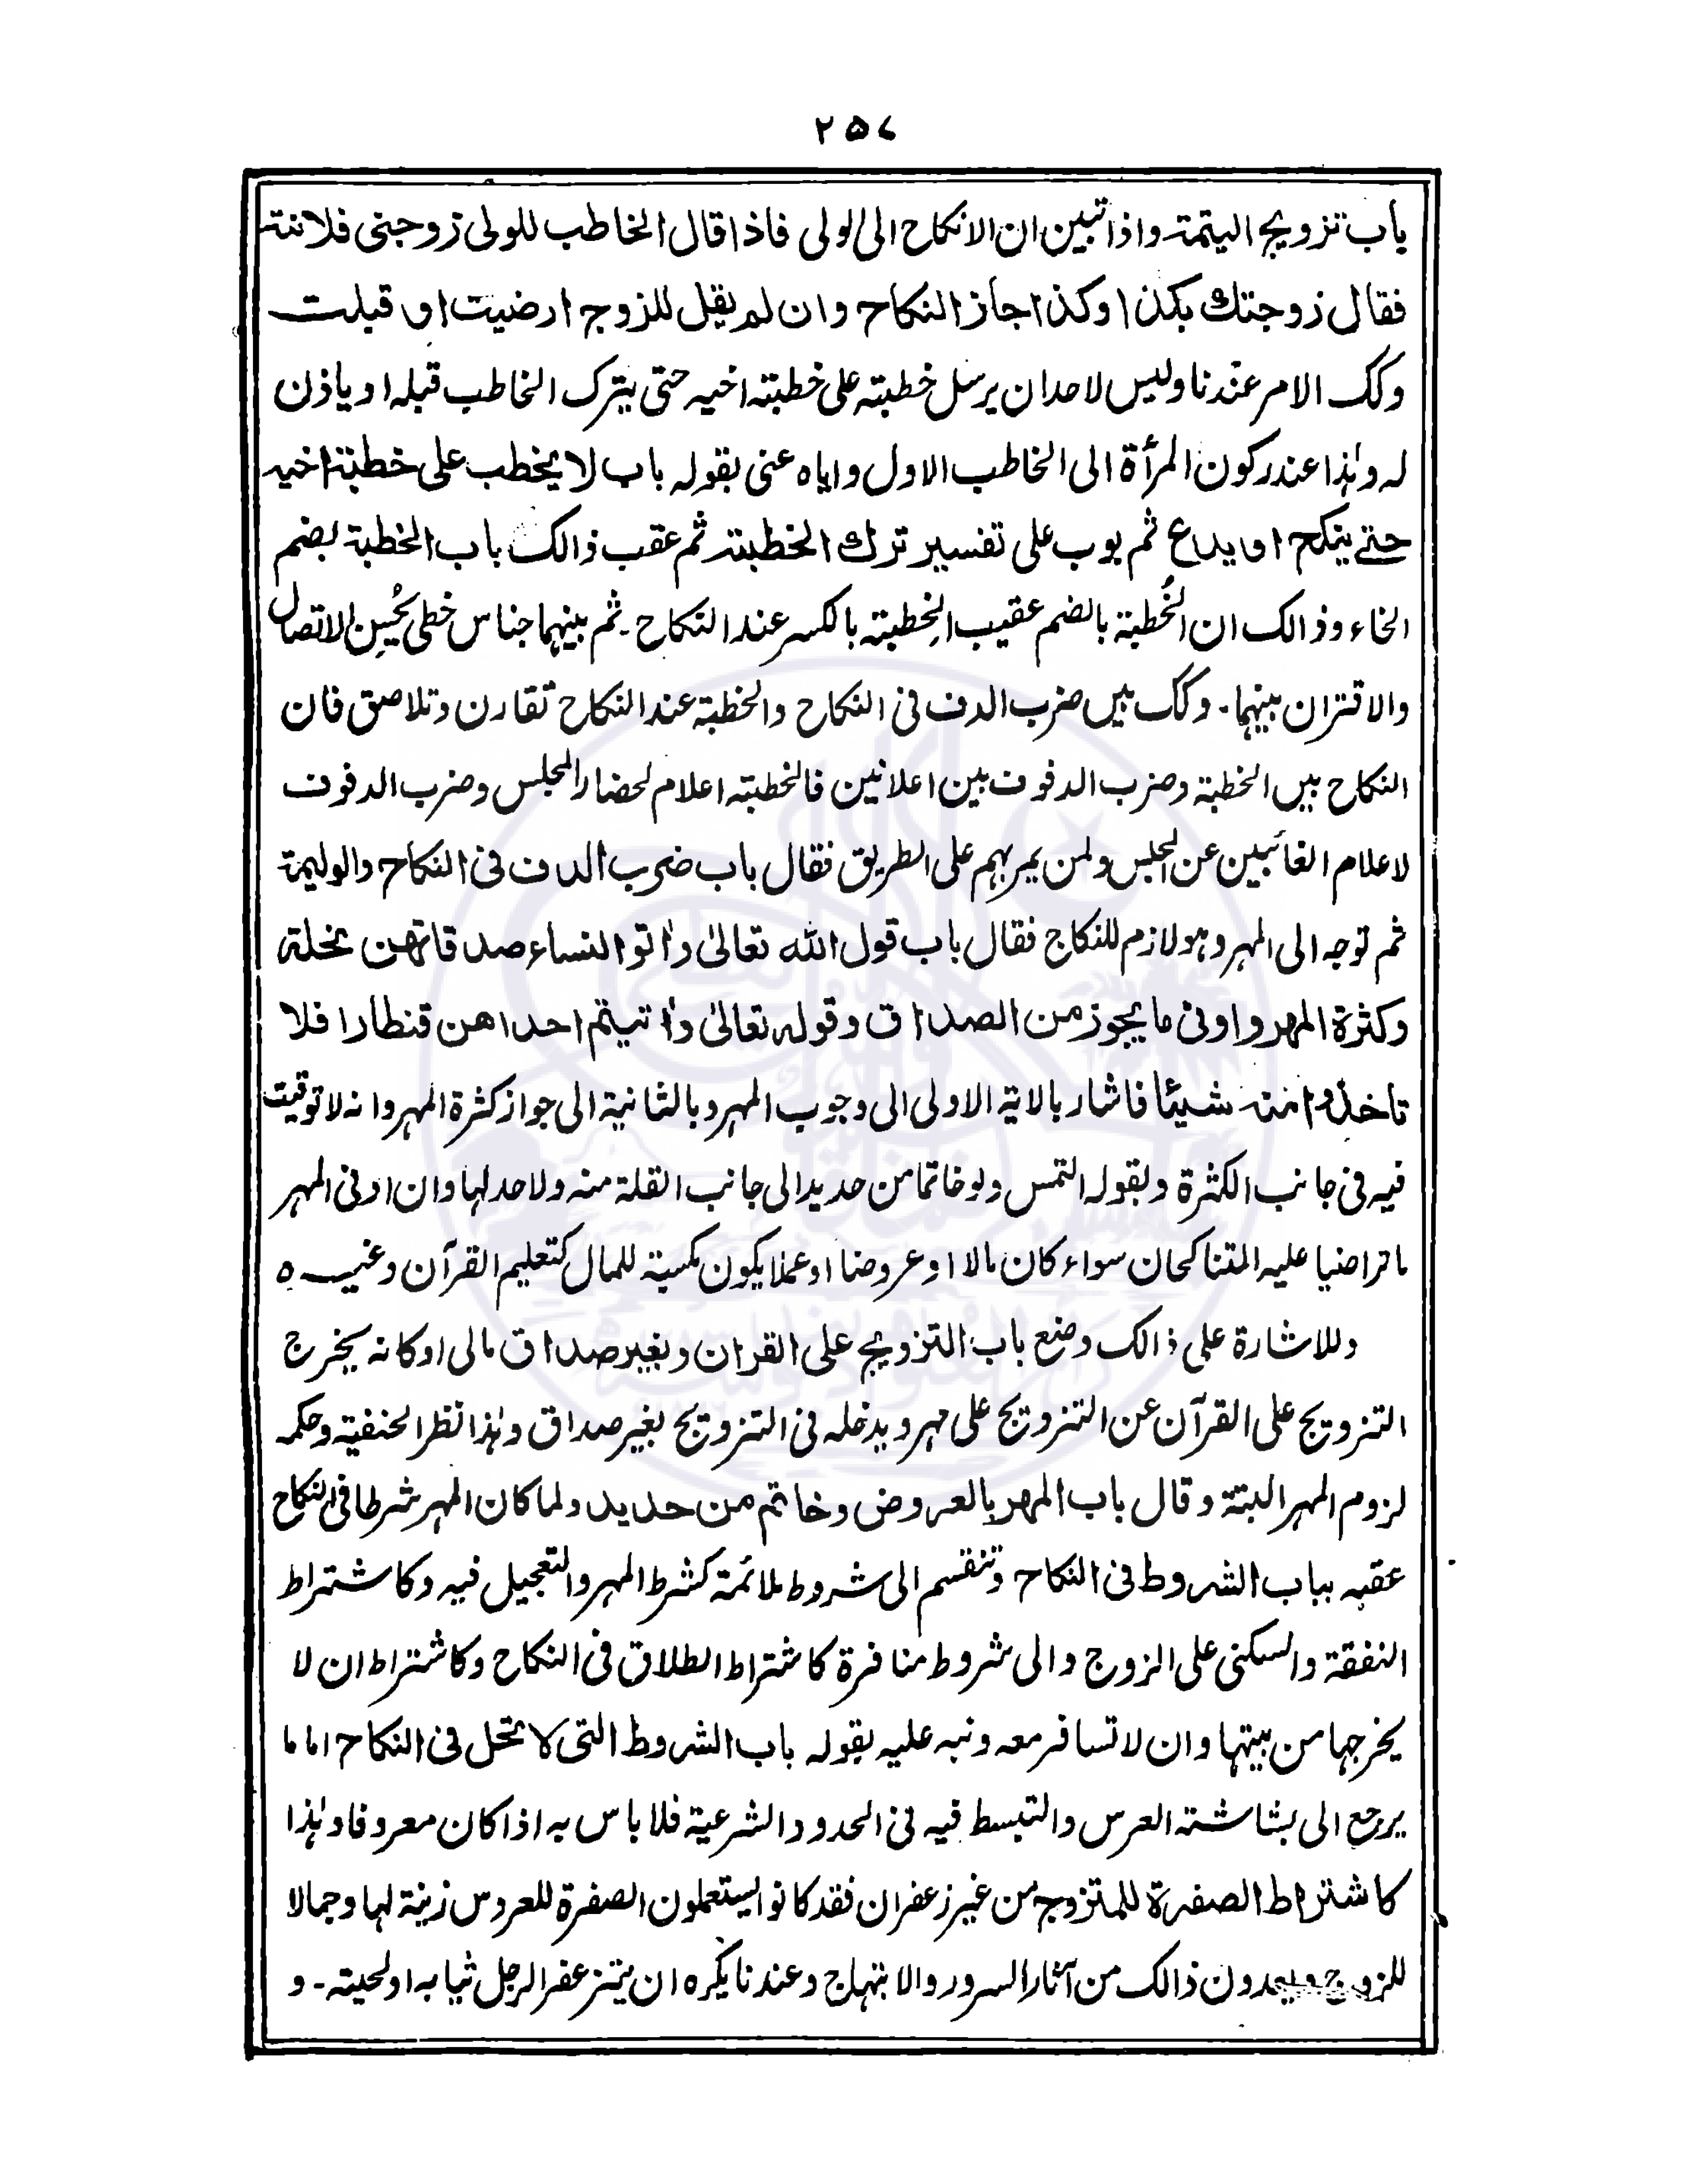 ۲۵۷
باب تزويج اليتمة واذا تبين ان الانكاح الى الولى فاذا قال الخاطب للولى زوجنى فلانة
فقال زوجتك بكذا وكذا جاز النكاح وان لم يقل للزوج ارضيت او قبلت
وكك الامر عندنا وليس لاحد ان يرسل خطبته على خطبته اخيه حتى يترك الخاطب قبله او ياذن
له وهذا عند ركون المرأة الى الخاطب الاول واياه عنى بقوله باب لا يخطب على خطبة اخيه
حتے ينكح او يدع ثم بوب على تفسير ترك الخطبة ثم عقب ذالك باب الخطبة بضم
الخاء وذالك ان الخُطبة بالضم عقيب الخِطبته بالكسر عند النكاح ۔ ثم بينهما جناس خطى يُحسِن الاتصال
والاقتران بينهما ۔ وكك بين ضرب الدف فى النكاح والخطبة عند النكاح تقارن وتلاصق فان
النكاح بين الخطبة وضرب الدفوف بين اعلانين فالخطبته اعلام لحضار المجلس وضرب الدفوف
لاعلام الغائبين عن المجلس ولمن يمر بهم على الطريق فقال باب ضرب الدف فى النكاح والوليمة
ثم توجه الى المهر وهو لازم للنكاح فقال باب قول الله تعالىٰ واٰتوا النساء صدقاتهن نحلة
وكثرة المهر وادنى ما يجوز من الصداق وقوله تعالىٰ واٰتيتم احداهن قنطارا فلا
تاخذوا منه شيئا فاشار بالاية الاولى الى وجوب المهر وبالثانية الى جواز كثرة المهر وانه لا توقيت
فيه فى جانب الكثرة وبقوله التمس ولو خاتما من حديد الى جانب القلة منه ولا حد لها وان ادنى المهر
ما تراضيا عليه المتناكحان سواء كان مالا او عروضا او عملا يكون مكسبة للمال كتعليم القرآن وغيره
وللاشارة على ذالك وضع باب التزويج على القران وبغير صداق مالى او كانه يخرج
التزويج على القرآن عن التزويج على مهر ويدخله فى التزويج بغير صداق وهذا نظر الحنفية وحكمه
لزوم المهر البتة وقال باب المهر بالعروض وخاتم من حديد ولما كان المهر شرطا فى النكاح
عقبه بباب الشروط فى النكاح وتنقسم الى شروط ملائمة كشرط المهر والتعجيل فيه وكاشتراط
النفقة والسكنى على الزوج والى شروط منافرة كاشتراط الطلاق فى النكاح وكاشتراط ان لا
يخرجها من بيتها وان لا تسافر معه ونبه عليه بقوله باب الشروط التى لا تحل فى النكاح اما ما
يرجع الى بشاشته العرس والتبسط فيه فى الحدود الشرعية فلا باس به اذا كان معروفا وهذا
كاشتراط الصفرة للمتزوج من غير زعفران فقد كانوا يستعملون الصفرة للعروس زينة لها وجمالا
للزوج ويعدون ذالك من آثار السرور والابتهاج وعندنا يكره ان يتزعفر الرجل ثيابه او لحيته ۔ و